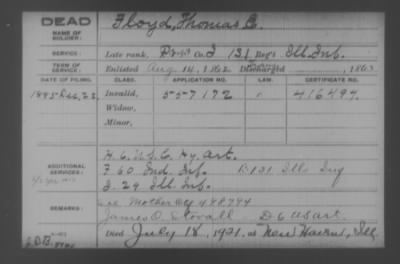 DEAD
NAME OF SOLDIER:
Floyd, Thomas B.
SERVICE:
Late rank, Co. I 131 Reg't Ill. Inf.
TERM OF SERVICE:
Enlisted Aug 14, 1862 Discharged , 1863
DATE OF FILING. CLASS. APPLICATION NO. LAW. CERTIFICATE NO.
1885 Dec. 22 Invalid, 557172 416497.
Widow,
Minor,
ADDITIONAL SERVICES:
H. 6. U.S.C. Hy. Art.
F 60 Ind. Inf. 131 Ill. Inf
G. 29 Ill. Inf.
REMARKS:
See Mother 498794
James O. Stovall - D 6 US art.
Died July 18, 1921, at New Haven, Ill.